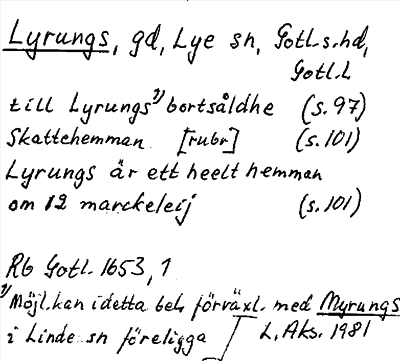 Lyrungs, gd, Lye sn, Gotl.s.hd,
Gotl.L
till Lyrungs 1) bortsåldhe (s.97)
Skattehemman [rubr] (s.101)
Lyrungs är ett heelt hemman
om 12 marckeleij (s.101)
Rb Gotl. 1653, 1
1) Möjl. kan i detta bel. förväxl. med Myrungs
i Linde sn föreligga L. Aks. 1981